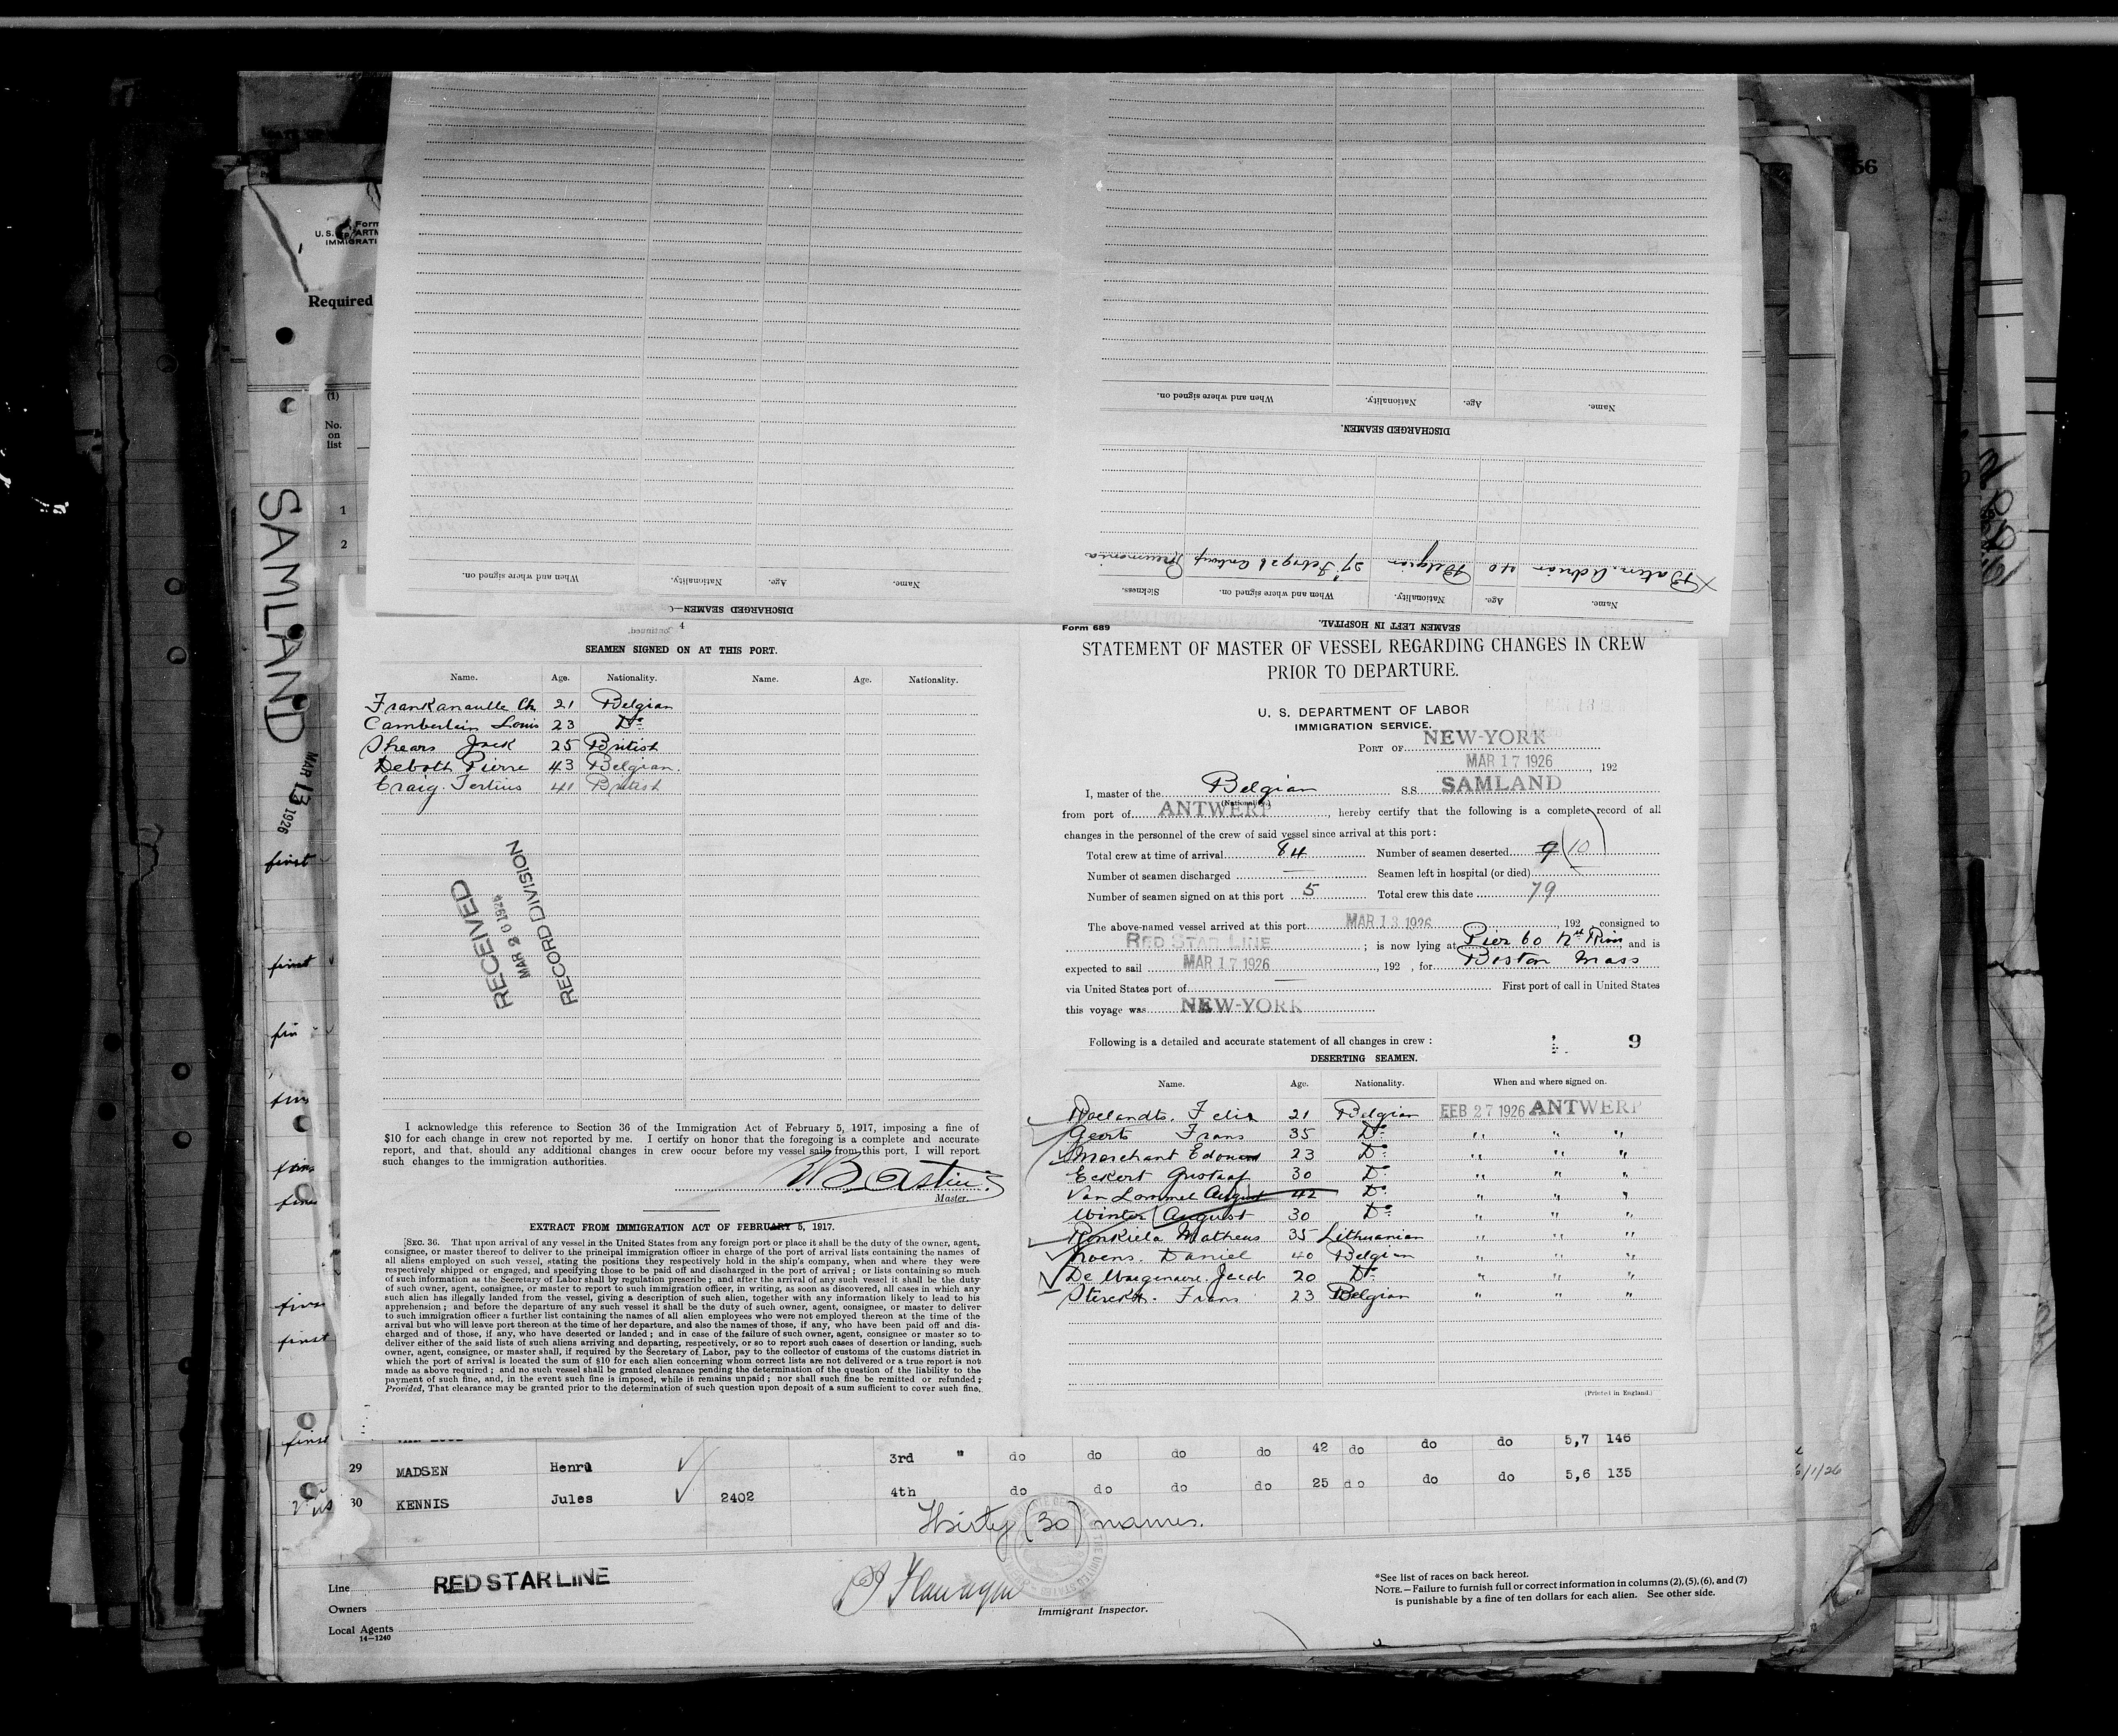 56
Form
U. S. DEPARTM
IMMIGRATI
Required
(1)
No.
on
list
1
2
SAMLAND
MAR 13 1926
first
first
first
first
first
DISCHARGED SEAMEN.
Name.
Age.
Nationality.
When and where signed on.
SEAMEN LEFT IN HOSPITAL.
Name. Age. Nationality. When and where signed on. Sickness.
X Baten Adrian 40 Belgian 27 Feb 1926 Antwerp Pneumonia
DISCHARGED SEAMEN—C
Name. Age. Nationality. When and where signed on.
4
SEAMEN SIGNED ON AT THIS PORT.
Name. Age. Nationality. Name. Age. Nationality.
Ch 21 Belgian
Camberlain Louis 23 Do
Shears Jack 25 British
Deboth Pierre 43 Belgian.
Craig. Tertius 41 British
RECEIVED
MAR 20 1926
RECORD DIVISION
I acknowledge this reference to Section 36 of the Immigration Act of February 5, 1917, imposing a fine of
$10 for each change in crew not reported by me. I certify on honor that the foregoing is a complete and accurate
report, and that, should any additional changes in crew occur before my vessel sails from this port, I will report
such changes to the immigration authorities.
Master.
EXTRACT FROM IMMIGRATION ACT OF FEBRUARY 5, 1917.
[SEC. 36. That upon arrival of any vessel in the United States from any foreign port or place it shall be the duty of the owner, agent,
consignee, or master thereof to deliver to the principal immigration officer in charge of the port of arrival lists containing the names of
all aliens employed on such vessel, stating the positions they respectively hold in the ship's company, when and where they were
respectively shipped or engaged, and specifying those to be paid off and discharged in the port of arrival; or lists containing so much
of such information as the Secretary of Labor shall by regulation prescribe; and after the arrival of any such vessel it shall be the duty
of such owner, agent, consignee, or master to report to such immigration officer, in writing, as soon as discovered, all cases in which any
such alien has illegally landed from the vessel, giving a description of such alien, together with any information likely to lead to his
apprehension; and before the departure of any such vessel it shall be the duty of such owner, agent, consignee, or master to deliver
to such immigration officer a further list containing the names of all alien employees who were not employed thereon at the time of the
arrival but who will leave port thereon at the time of her departure, and also the names of those, if any, who have been paid off and dis-
charged and of those, if any, who have deserted or landed; and in case of the failure of such owner, agent, consignee or master so to
deliver either of the said lists of such aliens arriving and departing, respectively, or so to report such cases of desertion or landing, such
owner, agent, consignee, or master shall, if required by the Secretary of Labor, pay to the collector of customs of the customs district in
which the port of arrival is located the sum of $10 for each alien concerning whom correct lists are not delivered or a true report is not
made as above required; and no such vessel shall be granted clearance pending the determination of the question of the liability to the
payment of such fine, and, in the event such fine is imposed, while it remains unpaid; nor shall such fine be remitted or refunded;
Provided, That clearance may be granted prior to the determination of such question upon deposit of a sum sufficient to cover such fine.
Form 689
STATEMENT OF MASTER OF VESSEL REGARDING CHANGES IN CREW
PRIOR TO DEPARTURE.
U. S. DEPARTMENT OF LABOR
IMMIGRATION SERVICE.
PORT OF NEW-YORK
MAR 17 1926, 192
I, master of the Belgian S.S. SAMLAND
(Nationality)
from port of ANTWERP, hereby certify that the following is a complete record of all
changes in the personnel of the crew of said vessel since arrival at this port:
Total crew at time of arrival 84 Number of seamen deserted 9 (10)
Number of seamen discharged — Seamen left in hospital (or died)
Number of seamen signed on at this port 5 Total crew this date 79
The above-named vessel arrived at this port MAR 13 1926, 192 consigned to
RED STAR LINE; is now lying at Pier 60 and is
expected to sail MAR 17 1926, 192 , for Boston Mass
via United States port of — First port of call in United States
this voyage was NEW-YORK
Following is a detailed and accurate statement of all changes in crew: 9
DESERTING SEAMEN.
Name. Age. Nationality. When and where signed on.
Roelandts. Felix 21 Belgian FEB 27 1926 ANTWERP
Geerts Frans 35 Do " " "
Merchant Edouard 23 Do " " "
Eckert Gustaaf 30 Do " " "
Van Lommel August 42 Do " " "
Winter August 30 Do " " "
Matheus 35 Lithuanian " " "
Daniel 40 Belgian " " "
De Wagenaere. Jacob 20 Do " " "
Sterckx. Frans 23 Belgian " " "
(Printed in England.)
3rd " do do do do 42 do do do 5,7 146
29 MADSEN Henri
30 KENNIS Jules 2402 4th do do do do 25 do do do 5,6 135
Thirty (30) names.
Line RED STAR LINE
Owners
Local Agents
14—1240
Flanagan
Immigrant Inspector.
*See list of races on back hereof.
NOTE.—Failure to furnish full or correct information in columns (2), (5), (6), and (7)
is punishable by a fine of ten dollars for each alien. See other side.